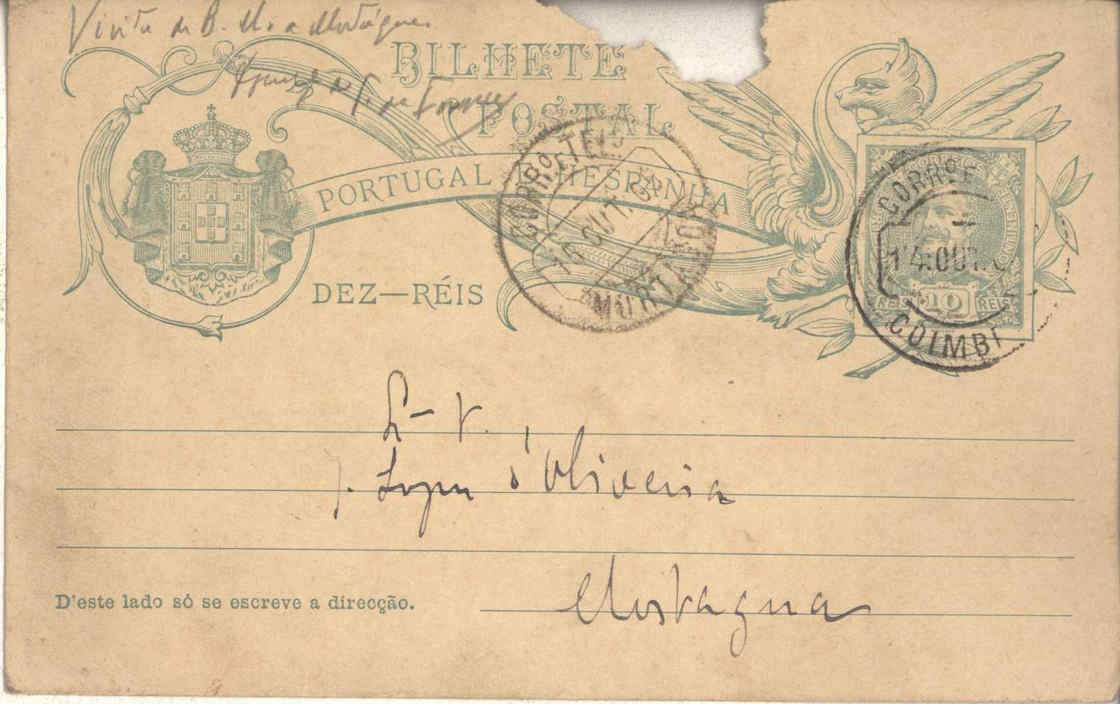 Visita de B. M. a Mortágua
BILHETE
POSTAL
PORTUGAL HESPANHA
DEZ—RÉIS
CORRO TEL
OUT
MORTAGOA
CORRO E
14 OUT
COIMB
REIS 10 REIS
J. Lopes d'Oliveira
Mortagua
D'este lado só se escreve a direcção.